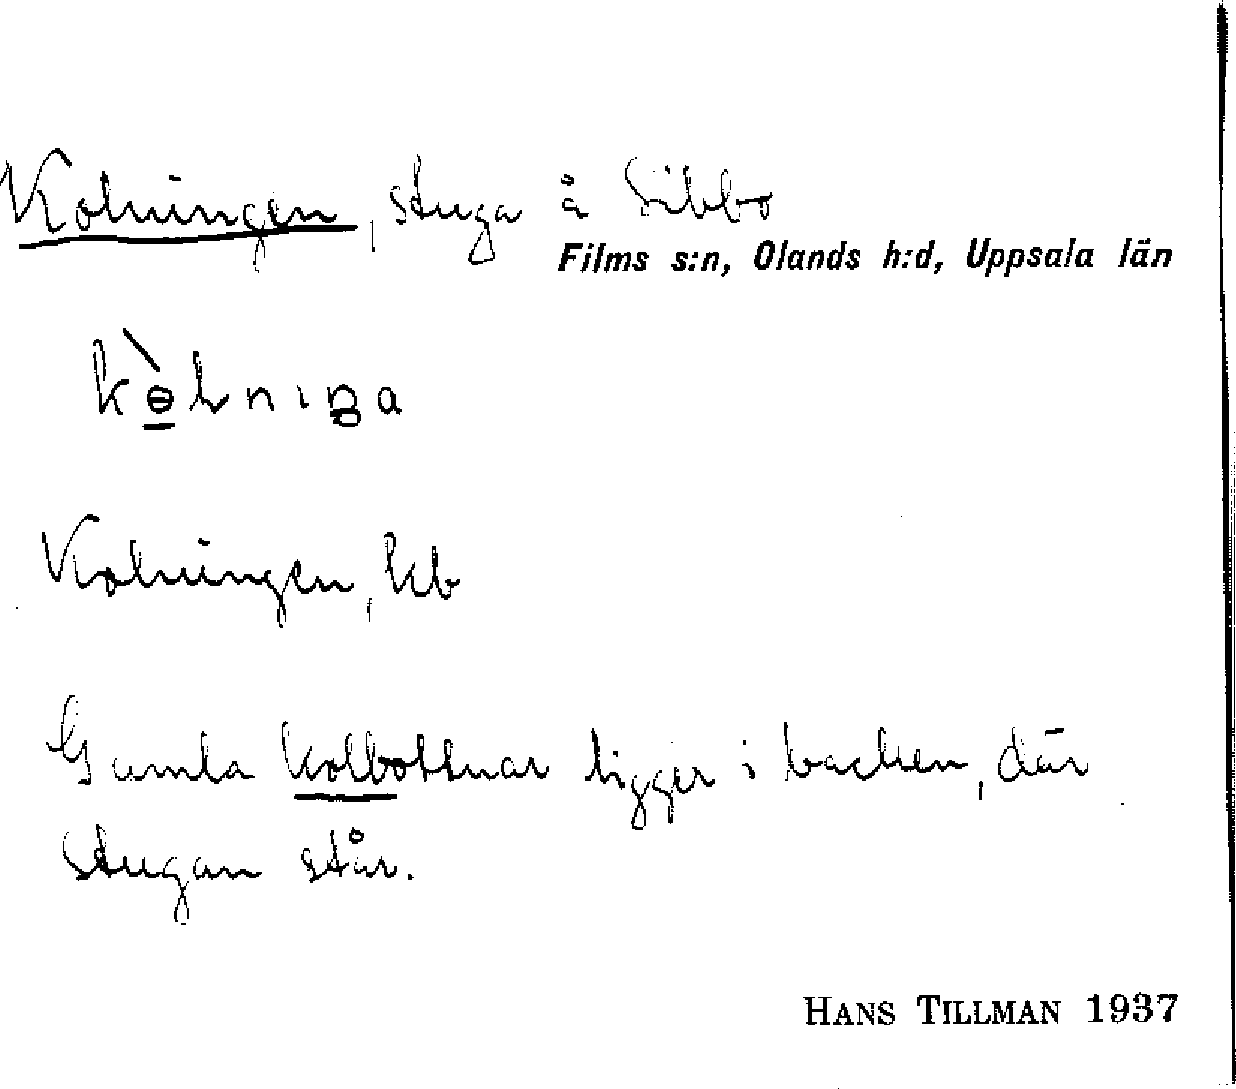 Kolningen, stuga å Sibbo
Films s:n, Olands h:d, Uppsala län
kɵ̀lnıŋa
Kolningen, kb
Gamla kolbottnar ligger i backen, där
stugan står.
HANS TILLMAN 1937